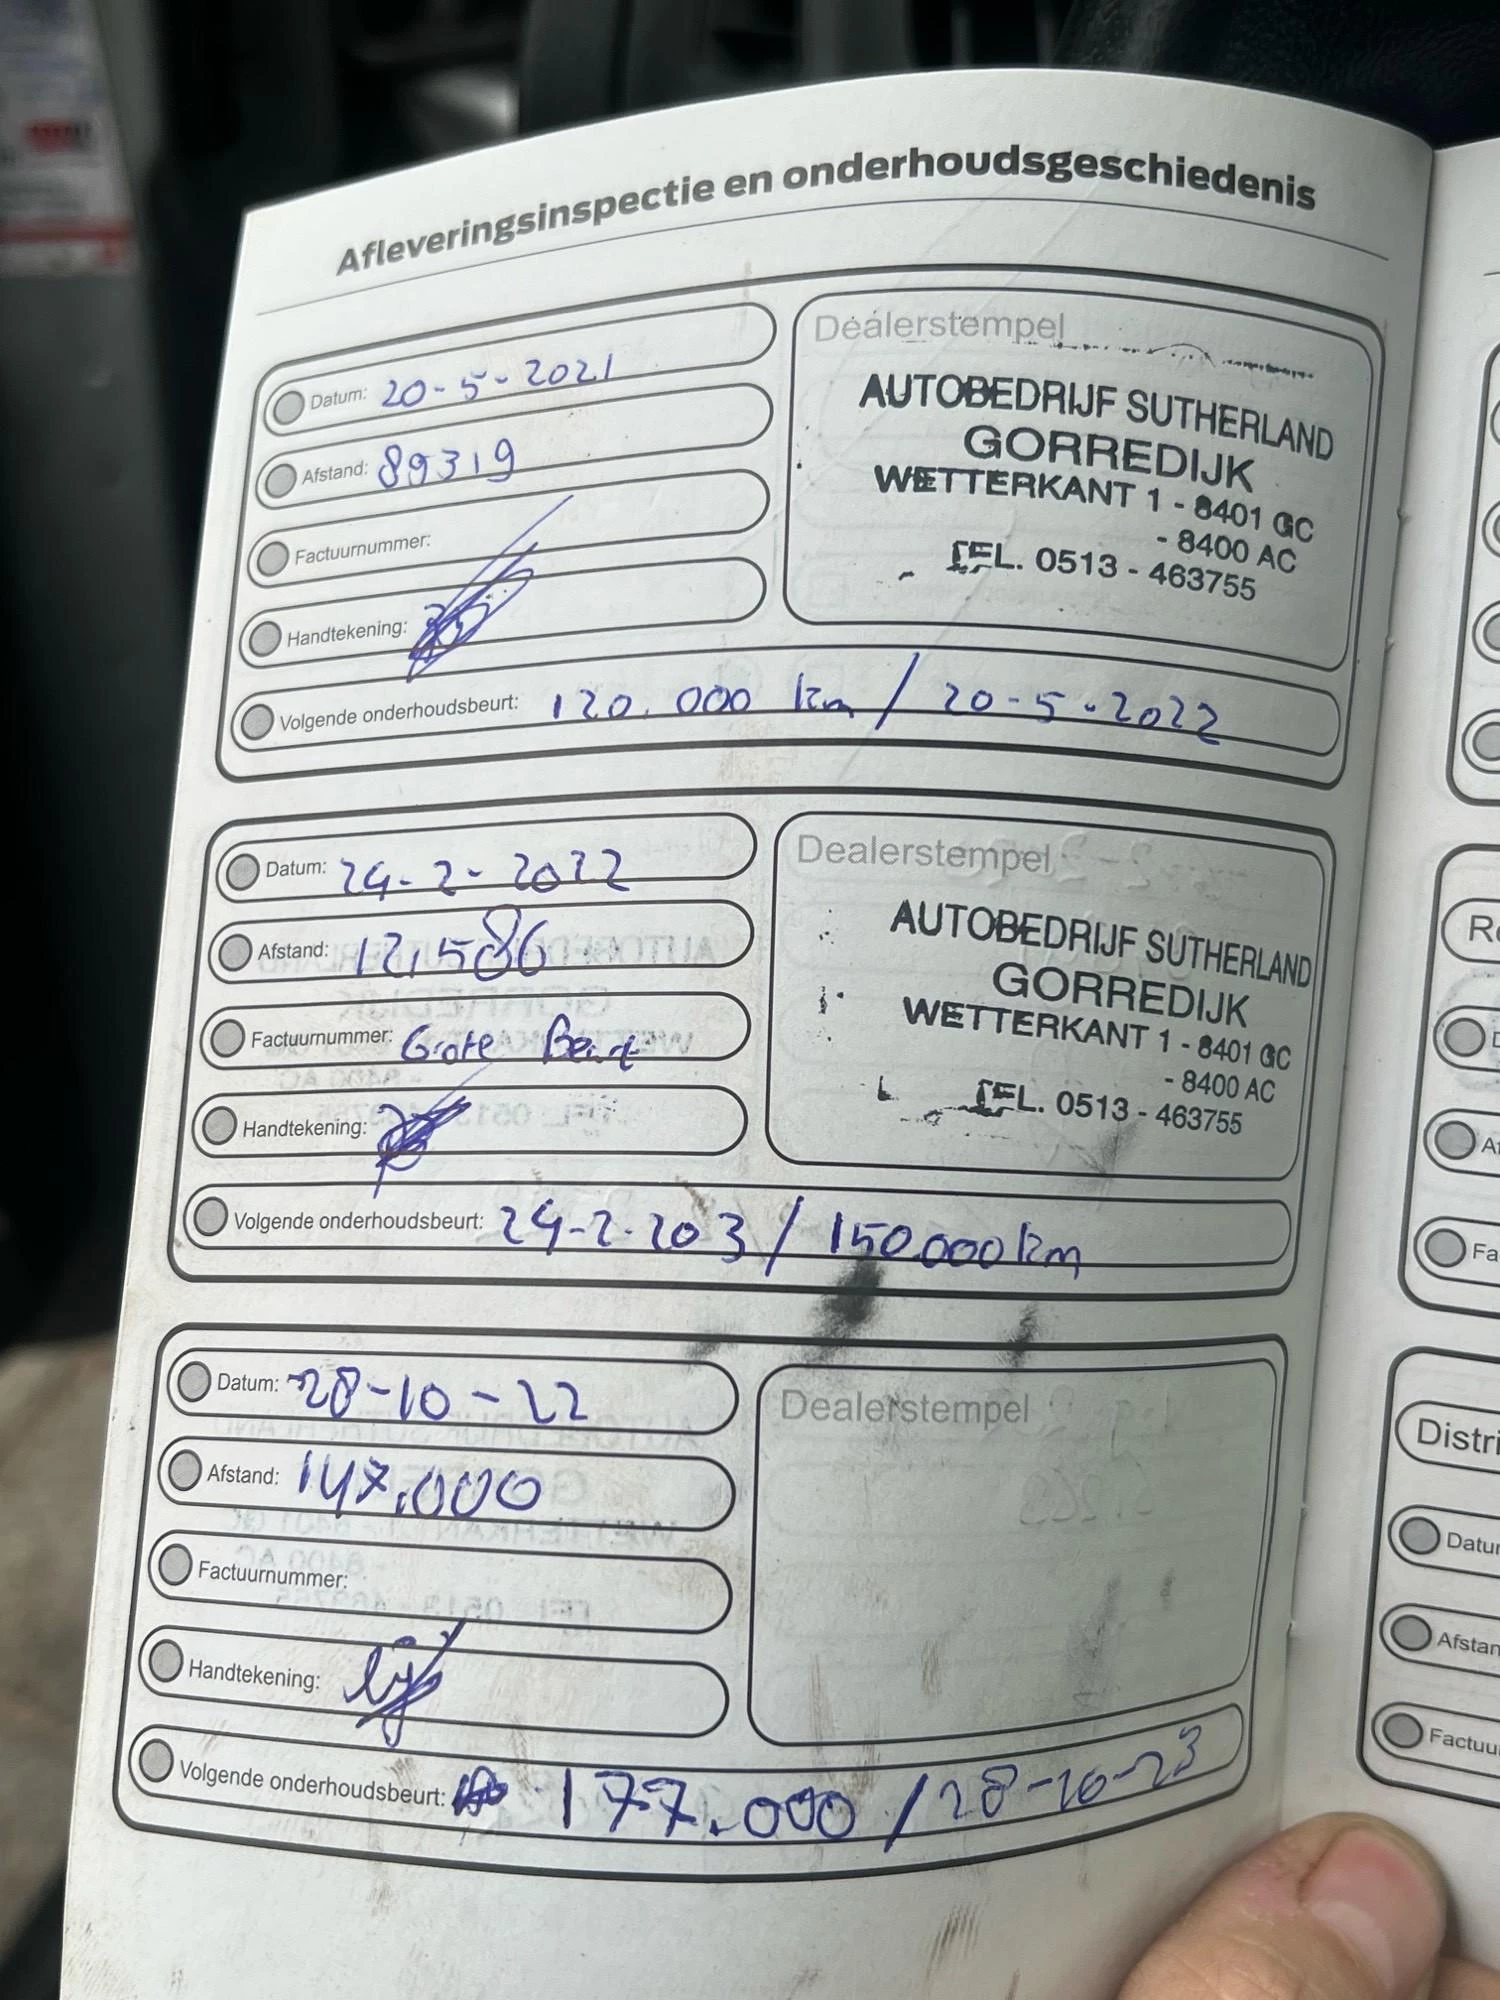 Afleveringsinspectie en onderhoudsgeschiedenis
Datum: 20-5-2021
Afstand: 89319
Factuurnummer:
Handtekening:
Volgende onderhoudsbeurt: 120.000 km / 20-5-2022
Dealerstempel
AUTOBEDRIJF SUTHERLAND
GORREDIJK
WETTERKANT 1 - 8401 GC
- 8400 AC
TEL. 0513 - 463755
Datum: 24-2-2022
Afstand: 121586
Factuurnummer: Grote Beurt
Handtekening:
Volgende onderhoudsbeurt: 24-2-203 / 150.000 km
Dealerstempel
AUTOBEDRIJF SUTHERLAND
GORREDIJK
WETTERKANT 1 - 8401 GC
- 8400 AC
TEL. 0513 - 463755
Datum: 28-10-22
Afstand: 147.000
Factuurnummer:
Handtekening:
Volgende onderhoudsbeurt: 177.000 / 28-10-23
Dealerstempel
Distri
Datu
Afstan
Factuu